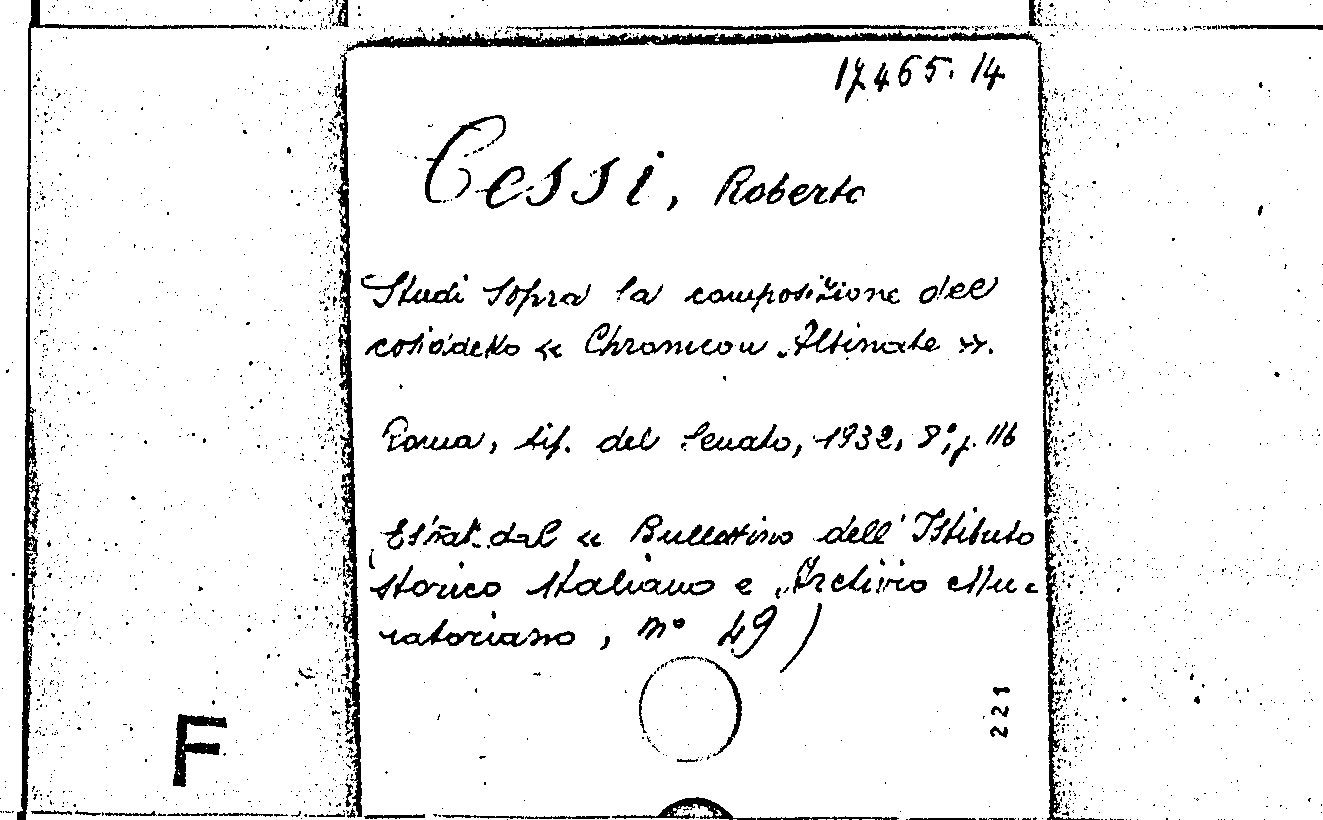 17465.14
Cessi, Roberto
Studi sopra la composizione del
cosiddetto « Chronicon Altinate ».
Roma, tip. del Senato, 1932, 8°, p. 116
(Estrat. dal « Bullettino dell' Istituto
storico Italiano e Archivio Mu-
ratoriano, n° 49)
221
F